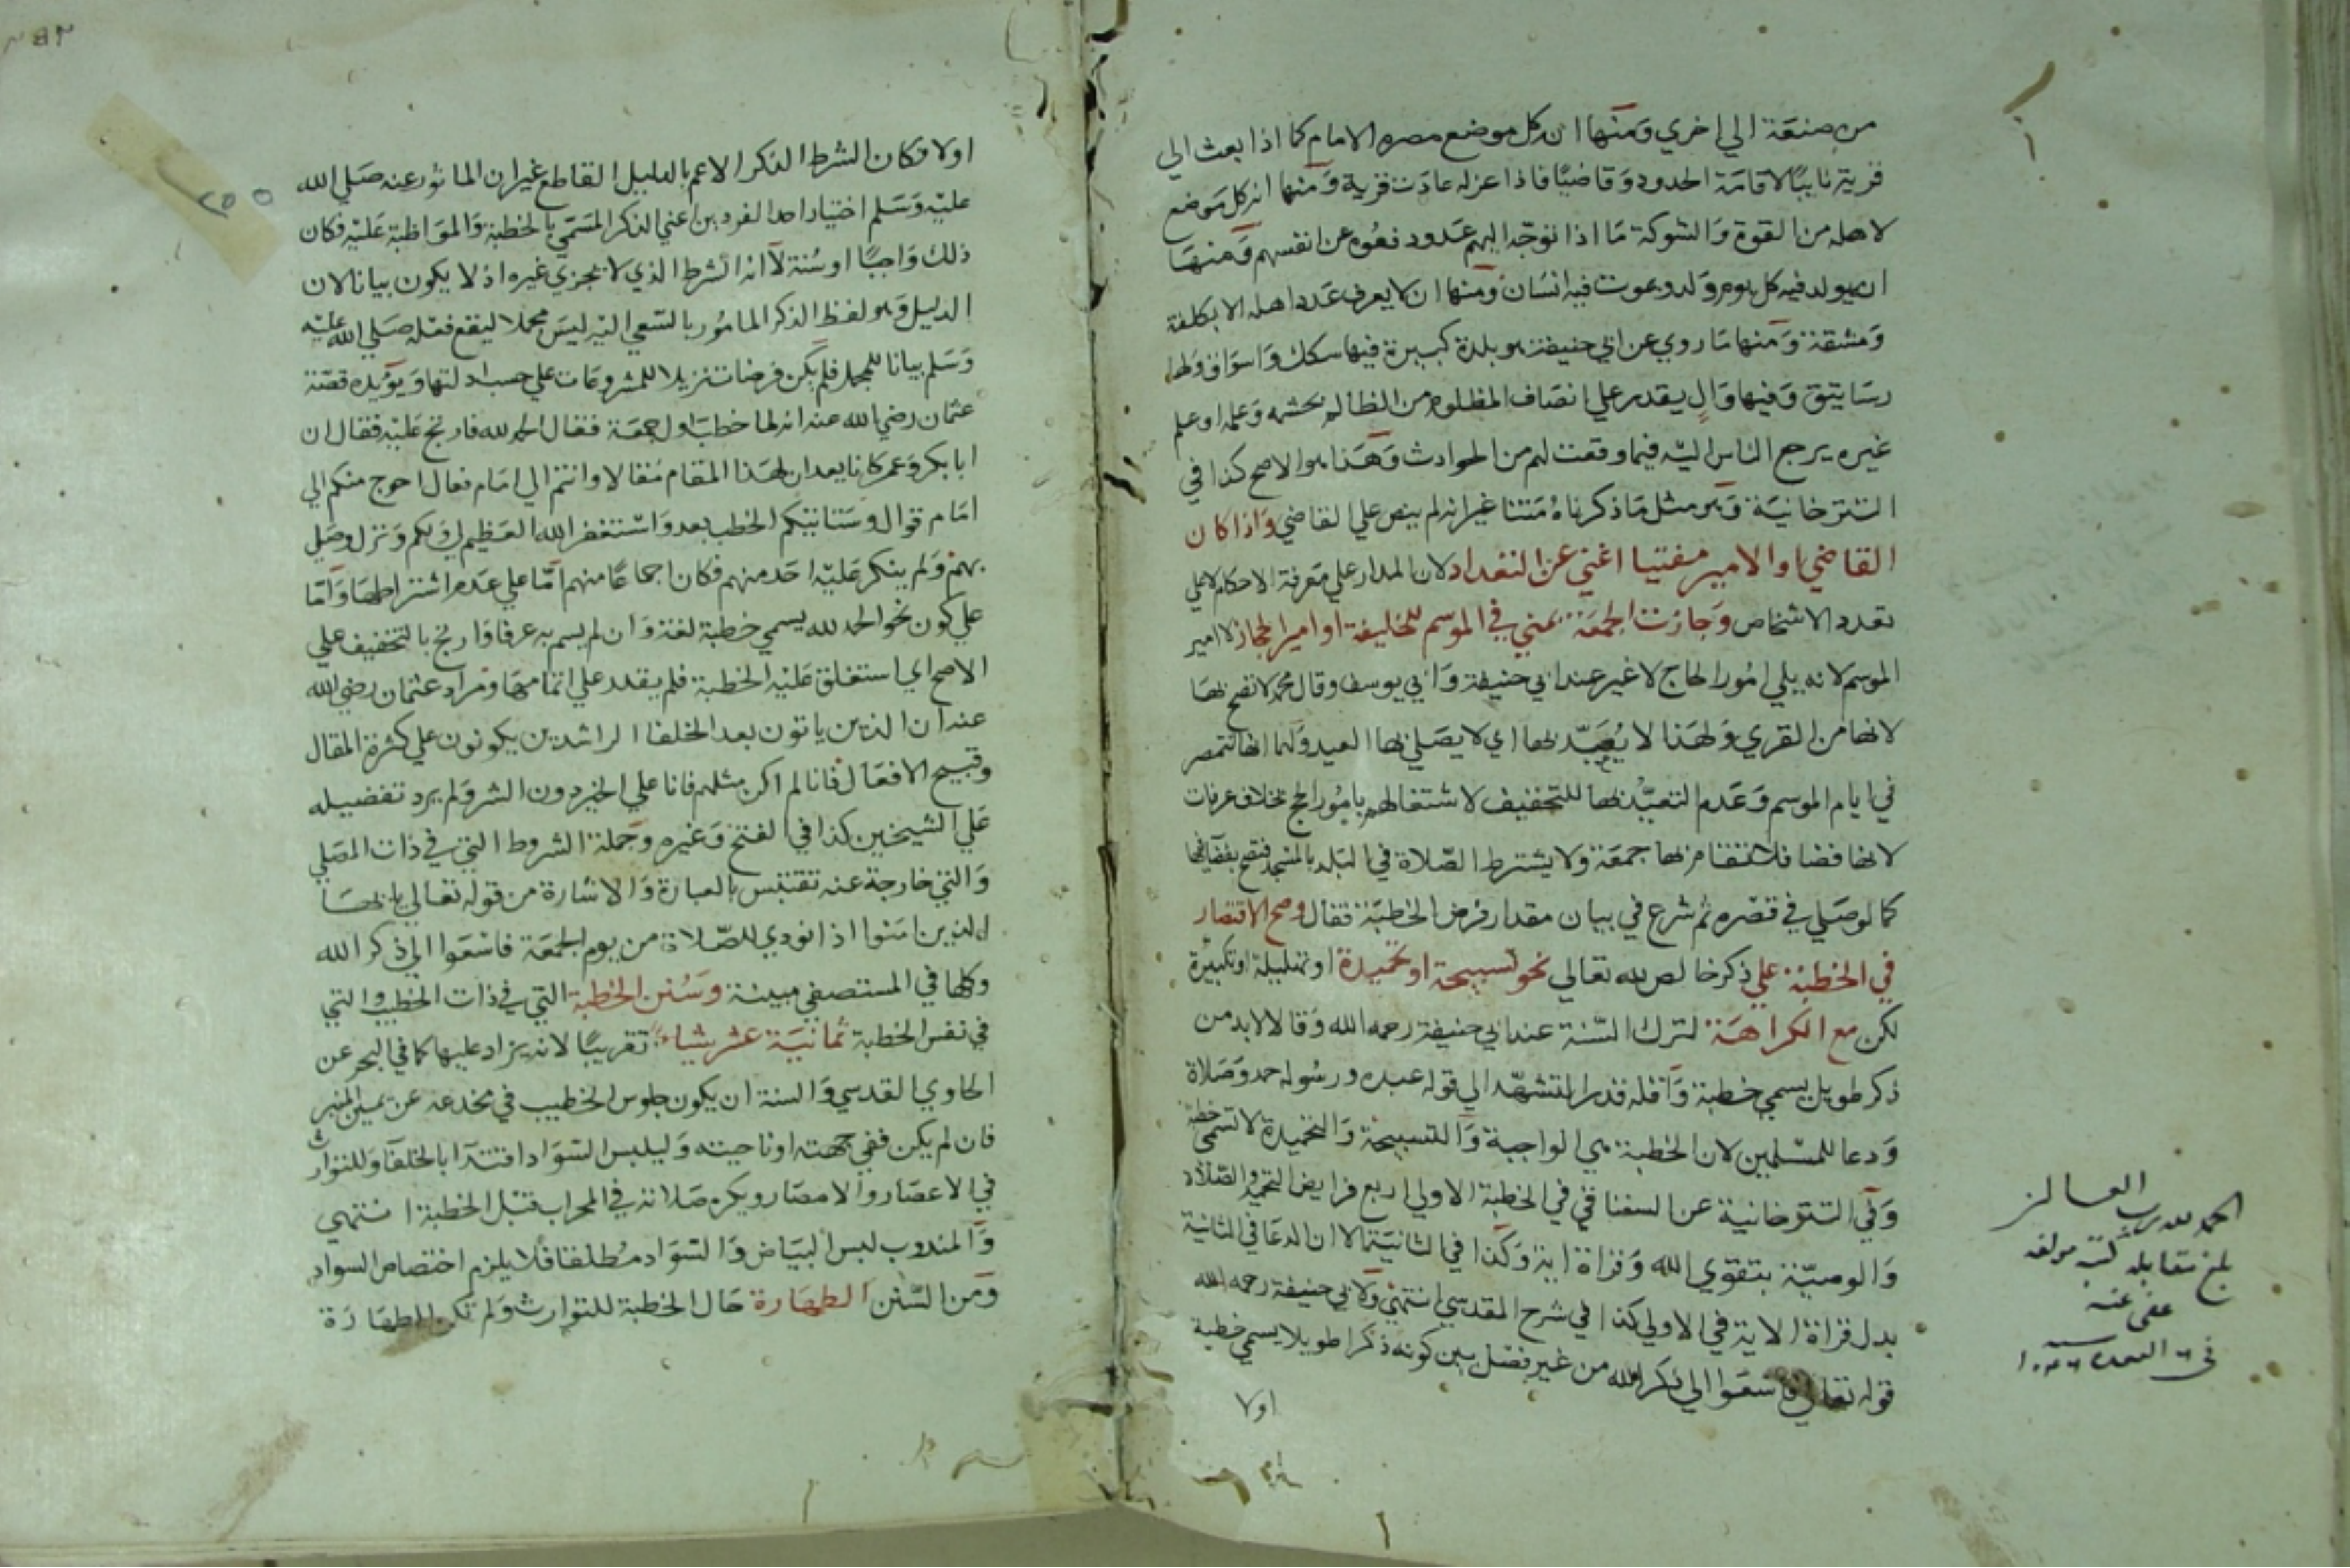 من صنعة الي اخري ومنها ان كل موضع مصره الامام كما اذا بعث الي
قرية نايبا لاقامة الحدود وقاضيا فاذا عزله عادت قرية ومنها ان كل موضع
لاهله من القوة والشوكة ما اذا توجه اليهم عدو دفعوه عن انفسهم ومنها
ان يولد فيه كل يوم ولد ويموت فيه انسان ومنها ان لا يعرف عدد اهله الا بكلفة
ومشقة ومنها ما روي عن ابي حنيفة هو بلدة كبيرة فيها سكك واسواق ولها
رساتيق وفيها وال يقدر علي انصاف المظلوم من الظالم بحشمه وعلمه او علم
غيره يرجع الناس اليه فيما وقعت لهم من الحوادث وهذا هو الاصح كذا في
التترخانية وهو مثل ما ذكرناه متنا غير انه لم ينص علي القاضي واذا كان
القاضي او الامير مفتيا اغني عن التعداد لان المدار علي معرفة الاحكام لا علي
تعدد الاشخاص وجازت الجمعة بمني في الموسم للخليفة او امير الحجاز لا امير
الموسم لانه يلي امور الحاج لا غير عند ابي حنيفة وابي يوسف وقال محمد لا تصح بها
لانها من القري ولهذا لا يعيد بها اي لا يصلي بها العيد ولهما انها تتمصر
في ايام الموسم وعدم التعييد بها للتخفيف لاشتغالهم بامور الحج بخلاف عرفات
لانها فضا فلا تقام بها جمعة ولا يشترط الصلاة في البلد بالمسجد فتصح بفضائها
كما لو صلي في قصره ثم شرع في بيان مقدار فرض الخطبة فقال وصح الاقتصار
في الخطبة علي ذكر خالص لله تعالي نحو تسبيحة او تحميدة او تهليلة او تكبيرة
لكن مع الكراهة لترك السنة عند ابي حنيفة رحمه الله وقالا لا بد من
ذكر طويل يسمي خطبة واقله قدر التشهد الي قوله عبده ورسوله حمد وصلاة
ودعا للمسلمين لان الخطبة هي الواجبة والتسبيحة والتحميدة لا تسمي خطبة
وفي التترخانية عن السغناقي في الخطبة الاولي اربع فرايض التحميد والصلاة
والوصية بتقوي الله وقراة اية وكذا في الثانية الا ان الدعا في الثانية
بدل قراة الاية في الاولي كذا في شرح المقدسي انتهي ولابي حنيفة رحمه الله
قوله تعالي فاسعوا الي ذكر الله من غير فصل بين كونه ذكرا طويلا يسمي خطبة
اولا
الحمد لله رب العالمين
بلغ مقابلة كتبه مولفه
عفي عنه
اولا فكان الشرط الذكر الاعم بالدليل القاطع غير ان الماثور عنه صلي الله
عليه وسلم اختيار احد الفردين اعني الذكر المسمي بالخطبة والمواظبة عليه فكان
ذلك واجبا او سنة لا انه الشرط الذي لا يجزي غيره اذ لا يكون بيانا لان
الدليل وهو لفظ الذكر المامور بالسعي اليه ليس مجملا ليقع فعله صلي الله عليه
وسلم بيانا للمجمل فلم يكن فرضا تنزيلا للمشروعات علي حسب ادلتها ويؤيده قصة
عثمان رضي الله عنه انه لما خطب اول جمعة فقال الحمد لله فارتج عليه فقال ان
ابا بكر وعمر كانا يعدان لهذا المقام مقالا وانتم الي امام فعال احوج منكم الي
امام قوال وستاتيكم الخطب بعد واستغفر الله العظيم لي ولكم ونزل وصلي
بهم ولم ينكر عليه احد منهم فكان اجماعا منهم اما علي عدم اشتراطها واما
علي كون نحو الحمد لله يسمي خطبة لغة وان لم يسم به عرفا وارتج بالتخفيف علي
الاصح اي استغلق عليه الخطبة فلم يقدر علي اتمامها ومراد عثمان رضي الله
عنه ان الذين ياتون بعد الخلفا الراشدين يكونون علي كثرة المقال
وقبيح الافعال فانا لم اكن مثلهم فانا علي الخير دون الشر ولم يرد تفضيله
علي الشيخين كذا في الفتح وغيره وجملة الشروط التي في ذات المصلي
والتي خارجة عنه تقتبس بالعبارة والاشارة من قوله تعالي يا ايها
الذين امنوا اذا نودي للصلاة من يوم الجمعة فاسعوا الي ذكر الله
وكلها في المستصفي مبينة وسنن الخطبة التي في ذات الخطيب والتي
في نفس الخطبة ثمانية عشر شياء تقريبا لانه يزاد عليها كما في البحر عن
الحاوي القدسي والسنة ان يكون جلوس الخطيب في مخدعه عن يمين المنبر
فان لم يكن ففي جهته او ناحيته وليلبس السواد اقتدا بالخلفا وللتوارث
في الاعصار والامصار ويكره صلاته في المحراب قبل الخطبة انتهي
والمندوب لبس البياض والسواد مطلقا فلا يلزم اختصاص السواد
ومن السنن الطهارة حال الخطبة للتوارث ولم تكن الطهارة